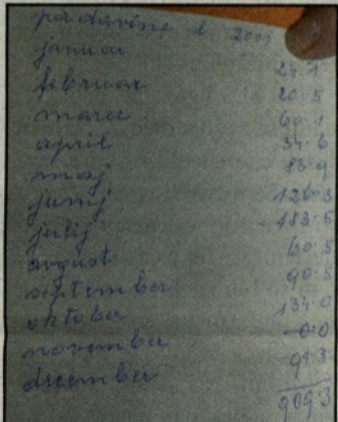 padavine l 2011
januar 24.1
februar 20.5
marec 60.1
april 34.6
maj 83.9
junij 126.3
julij 183.5
avgust 60.5
september 90.5
oktober 134.0
november 0.0
december 91.3
909.3